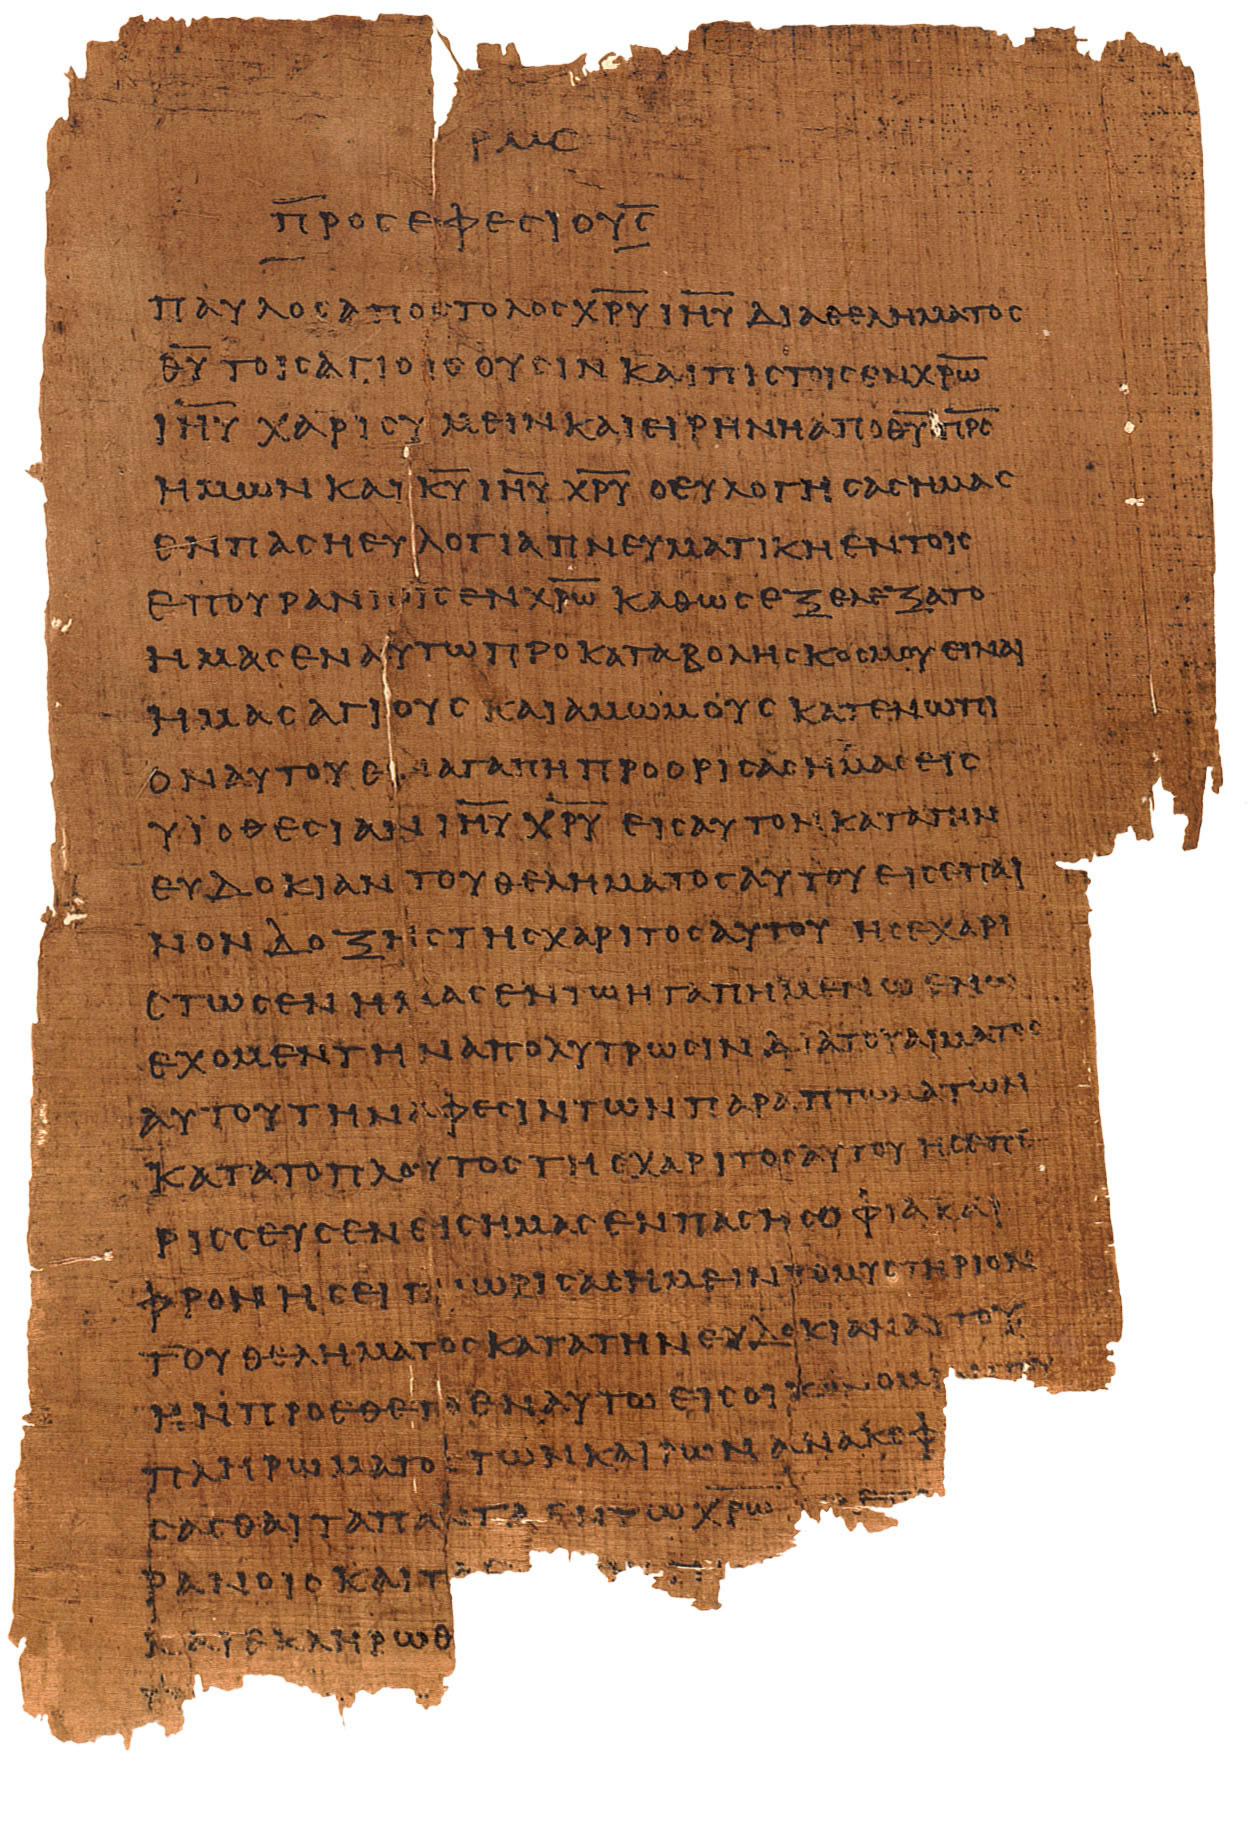 ρμϛ
π̅ροσεφεσιουσ̅
παυλοσαποστολοσχ̅ρ̅υ̅ ι̅η̅υ̅ διαθεληματοσ
θ̅υ̅ τοισαγιοισουσιν καιπιστοισενχ̅ρ̅ω̅
ι̅η̅υ̅ χαρισυμεινκαιειρηνηαποθ̅υ̅π̅ρ̅σ̅
ημων και κ̅υ̅ι̅η̅υ̅ χ̅ρ̅υ̅ οευλογησασημασ
ενπασηευλογιαπνευματικηεντοισ
επουρανιοϊσενχ̅ρ̅ω̅ καθωσεξελεξατο
ημασεναυτωπροκαταβολησκοσμουειναι
ημασαγιουσ καιαμωμουσ κατενωπι
οναυτουεναγαπηπροορισασημασεισ
υϊοθεσιανιη̅υ̅ χ̅ρ̅υ̅ εισαυτονκατατην
ευδοκιαν τουθεληματοσαυτουεισεπαι
νον δοξηστησχαριτοσαυτου ησεχαρι
στωσεν ημασεντωηγαπημενωενω
εχομεντηναπολυτρωσιν διατουαιματοσ
αυτουτηναφεσιντωνπαραπτωματων
κατατοπλουτοστησχαριτοσαυτου ησεπε
ρισσευσενεισημασενπασησοφιακαι
φρονησειγνωρισασημειντομυστηριον
τουθεληματοσκατατηνευδοκιαναυτου
ηνπροεθετοεναυτωεισοικονομιαντου
πληρωματοστωνκαιρωνανακεφ
σασθαιταπανταεντωχ̅ρ̅ω̅
ρανοισκαιτ
καιεκληρωθ